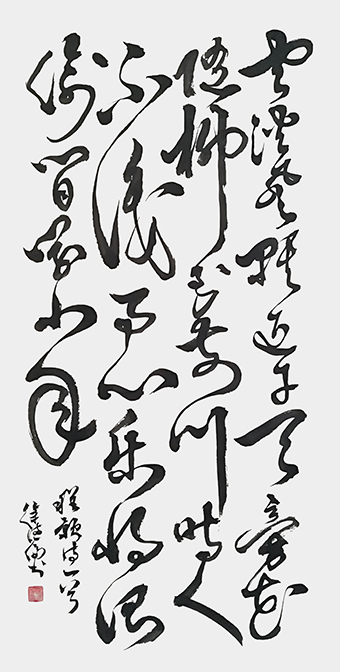 云淡风轻近午天旁花
随柳过前川时人
不识予心乐将谓
偷闲学少年
程颢诗一首